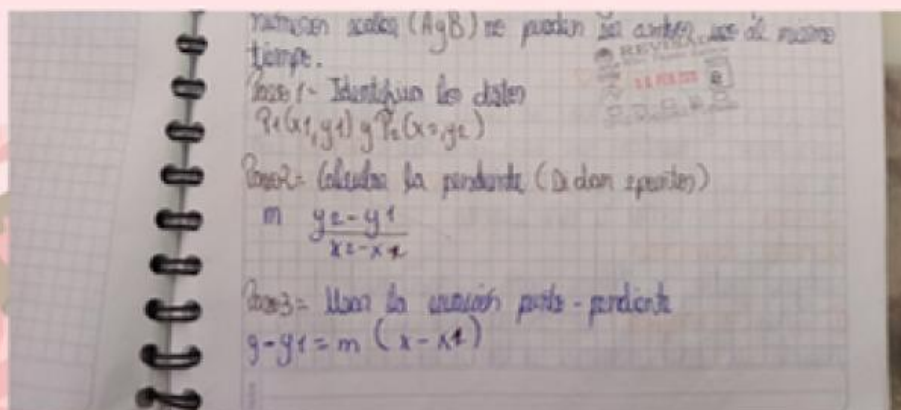 números reales (A y B) no pueden ser ambos 0 al mismo
tiempo.
Paso 1- Identifican los datos
P1(x1,y1) y P2(x2,y2)
Paso2= Calcular la pendiente (Si dan 2 puntos)
m y2-y1
x2-x1
Paso3= Usar la ecuación punto-pendiente
y-y1=m (x-x1)
REVISA